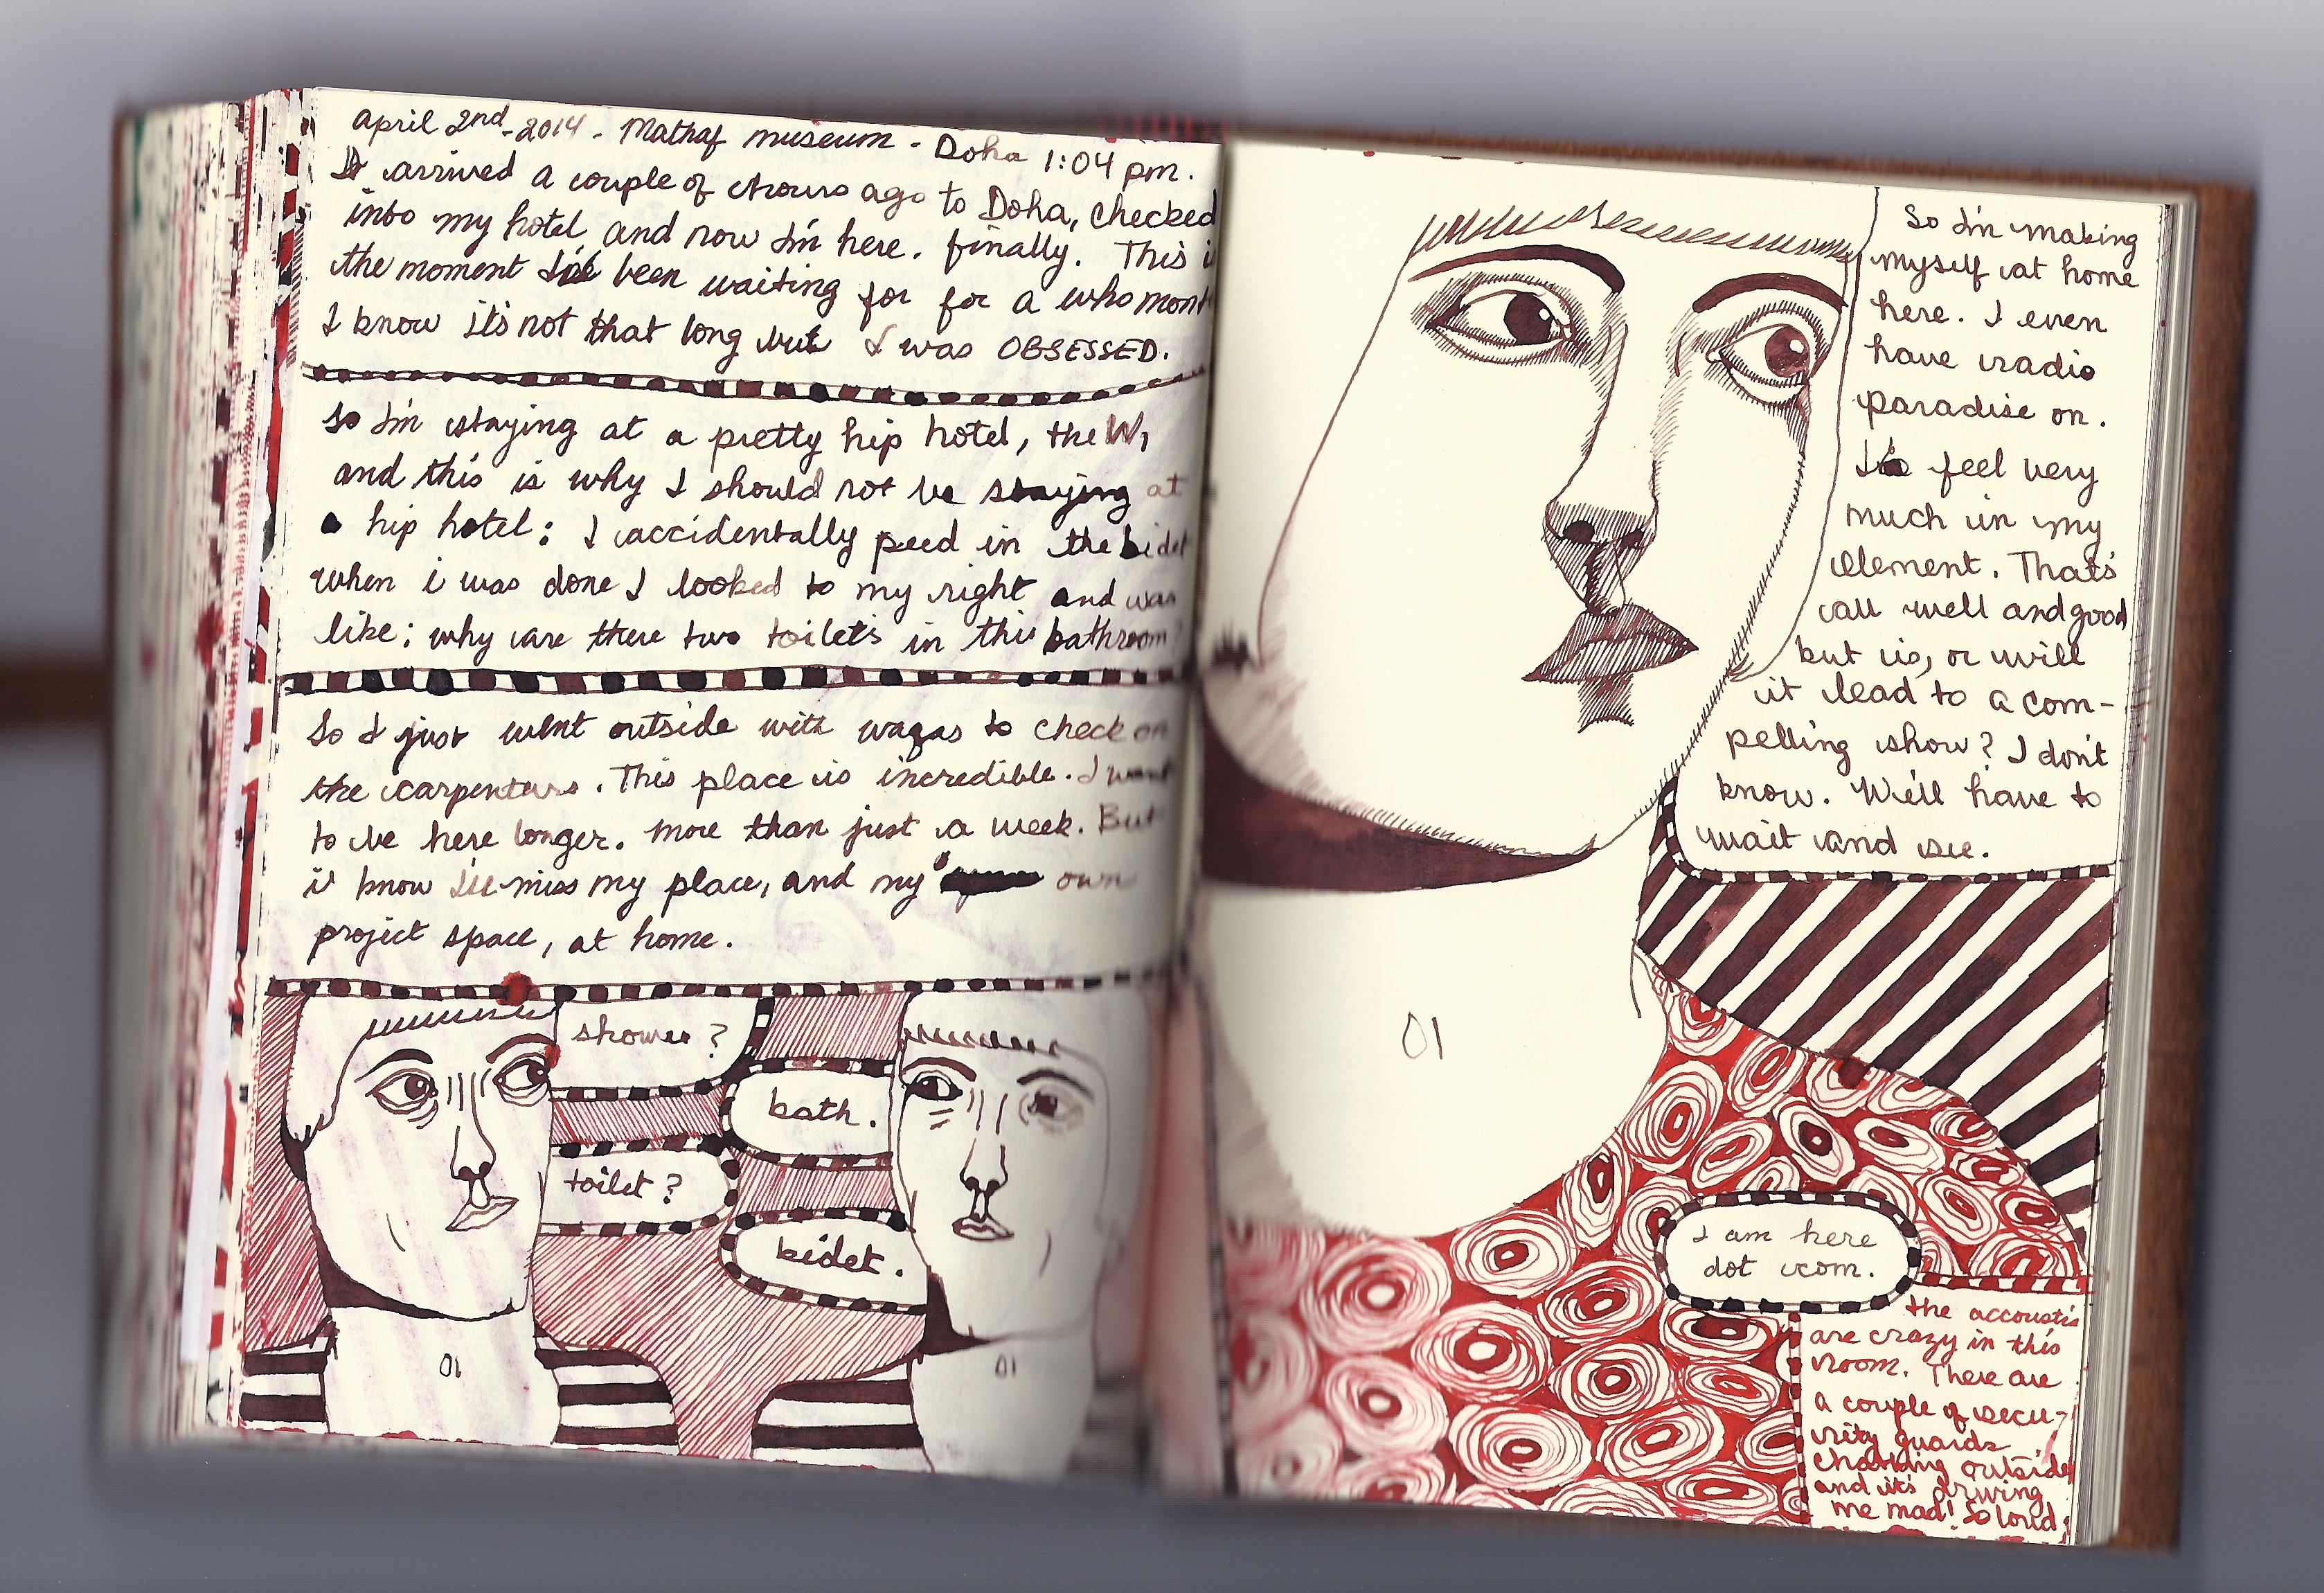 April 2nd - 2014 - Mathaf museum - Doha 1:04 pm.
I arrived a couple of hours ago to Doha, checked
into my hotel and now I'm here. finally. This i
the moment I've been waiting for for a who mont
I know it's not that long but I was OBSESSED.
So I'm staying at a pretty hip hotel, the W,
and this is why I should not be staying at
a hip hotel: I accidentally peed in the bidet
when i was done I looked to my right and was
like: why are there two toilets in this bathroom?
So I just went outside with waqas to check on
the carpenters. This place is incredible. I want
to be here longer. more than just a week. But
i know I'll miss my place, and my own
project space, at home.
shower?
bath.
toilet?
bidet.
01
01
So I'm making
myself at home
here. I even
have radio
paradise on.
I feel very
much in my
element. That's
all well and good
but is, or will
it lead to a com-
pelling show? I don't
know. We'll have to
wait and see.
01
I am here
dot com.
the accoustis
are crazy in this
room. There are
a couple of secu-
rity guards
chatting outside
and it's driving
me mad! So loud.